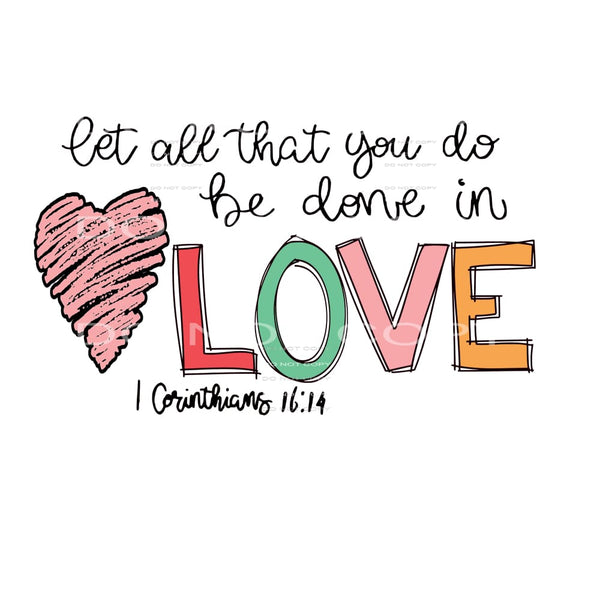 let all that you do
be done in
LOVE
1 Corinthians 16:14
DO NOT COPY